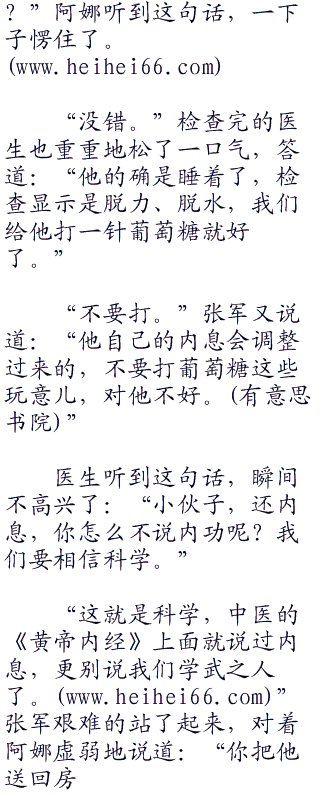 ？”阿娜听到这句话，一下
子愣住了。
(www.heihei66.com)
“没错。”检查完的医
生也重重地松了一口气，答
道：“他的确是睡着了，检
查显示是脱力、脱水，我们
给他打一针葡萄糖就好
了。”
“不要打。”张军又说
道：“他自己的内息会调整
过来的，不要打葡萄糖这些
玩意儿，对他不好。(有意思
书院)”
医生听到这句话，瞬间
不高兴了：“小伙子，还内
息，你怎么不说内功呢？我
们要相信科学。”
“这就是科学，中医的
《黄帝内经》上面就说过内
息，更别说我们学武之人
了。(www.heihei66.com)”
张军艰难的站了起来，对着
阿娜虚弱地说道：“你把他
送回房